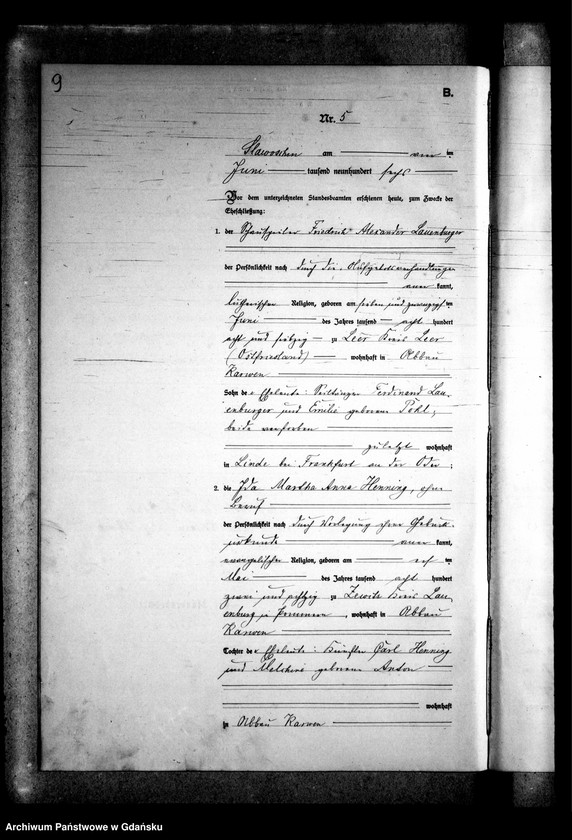 9
B.
Nr. 5
am
ten
Juni tausend neunhundert sechs
Vor dem unterzeichneten Standesbeamten erschienen heute, zum Zwecke der
Eheschließung:
1. der Friedrich Alexander Lauenburger
der Persönlichkeit nach durch die Aufgebotsverhandlungen
kannt,
lutherischer Religion, geboren am sieben und zwanzigsten
Juni des Jahres tausend acht hundert
acht und siebzig zu Leer Kreis Leer
(Ostfriesland) wohnhaft in Abbau
Karwen
Sohn der Eheleute: Ferdinand Lau-
enburger und Emilie geborene Pohl,
beide verstorben
zuletzt wohnhaft
in Linde bei Frankfurt an der Oder;
2. die Ida Martha Anna Henning, ohne
Beruf
der Persönlichkeit nach durch Vorlegung ihrer Geburts-
urkunde kannt,
evangelischer Religion, geboren am ten
Mai des Jahres tausend acht hundert
zwei und achtzig zu Zewitz Kreis Lau-
enburg in Pommern, wohnhaft in Abbau
Karwen
Tochter der Eheleute: Carl Henning
und geborene Anton
wohnhaft
in Abbau Karwen
Archiwum Państwowe w Gdańsku